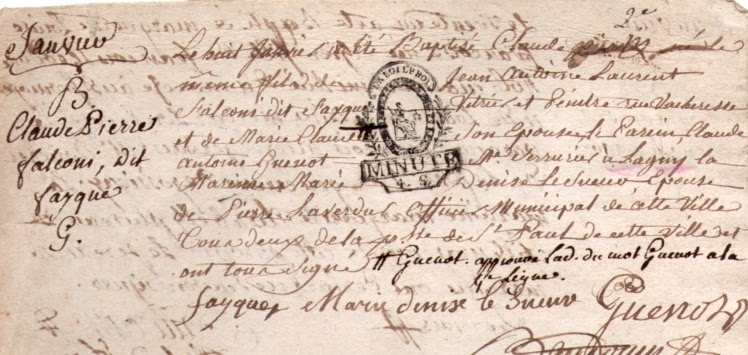 2e
Janvier
Le huit Janvier a été Baptisé Claude né le
B.
même fils de Jean Antoine Laurent
Claude Pierre
Falconi dit Fayque Vitrier et Peintre rue
falconi, dit
et de Marie Son Epouse, le Parein, Claude
fayque
antoine Guenot Me Serrurier à Lagny la
G.
Mareinne Marie Denise le Sueur Epouse
de Pierre Officier Municipal de cette Ville
Tous deux de la de St Paul de cette Ville et
ont tous Signé # Guenot. approuvé l'ad. du mot Guenot a la
ligne.
LA LOI LE ROI
MINUTE
4. S.
fayque Marie denise le Sueur Guenot